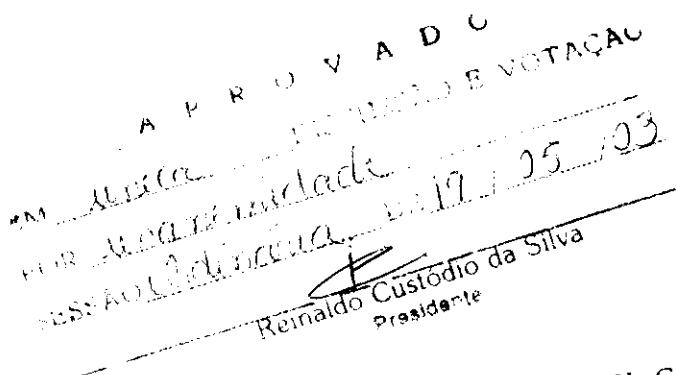 A P R O V A D O
EM única DISCUSSÃO E VOTAÇÃO
POR unanimidade
SESSÃO Ordinária DE 19 / 05 / 03
Reinaldo Custódio da Silva
Presidente